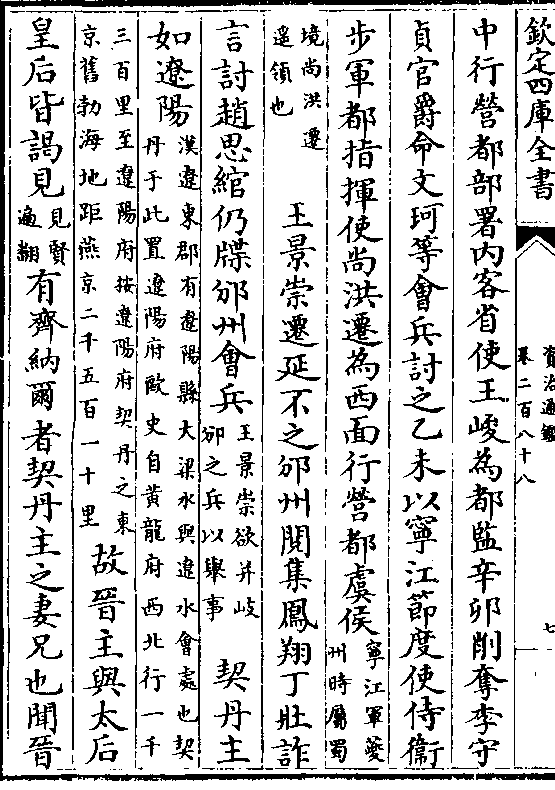 欽定四庫全書
資治通鑑
卷二百八十八
七
中行營都部署内客省使王峻為都監辛卯削奪李守
貞官爵命文珂等會兵討之乙未以寧江節度使侍衛
步軍都指揮使尚洪遷為西面行營都虞侯寧江軍夔
州時屬蜀
境尚洪遷
遥領也王景崇遷延不之邠州閱集鳳翔丁壯詐
言討趙思綰仍牒邠州會兵王景崇欲并岐
邠之兵以舉事契丹主
如遼陽漢遼東郡有遼陽縣大梁水與遼水會處也契
丹于此置遼陽府歐史自黄龍府西北行一千
三百里至遼陽府按遼陽府契丹之東
京舊勃海地距燕京二千五百一十里故晉主與太后
皇后皆謁見見賢
遍翻有齊納爾者契丹主之妻兄也聞晉